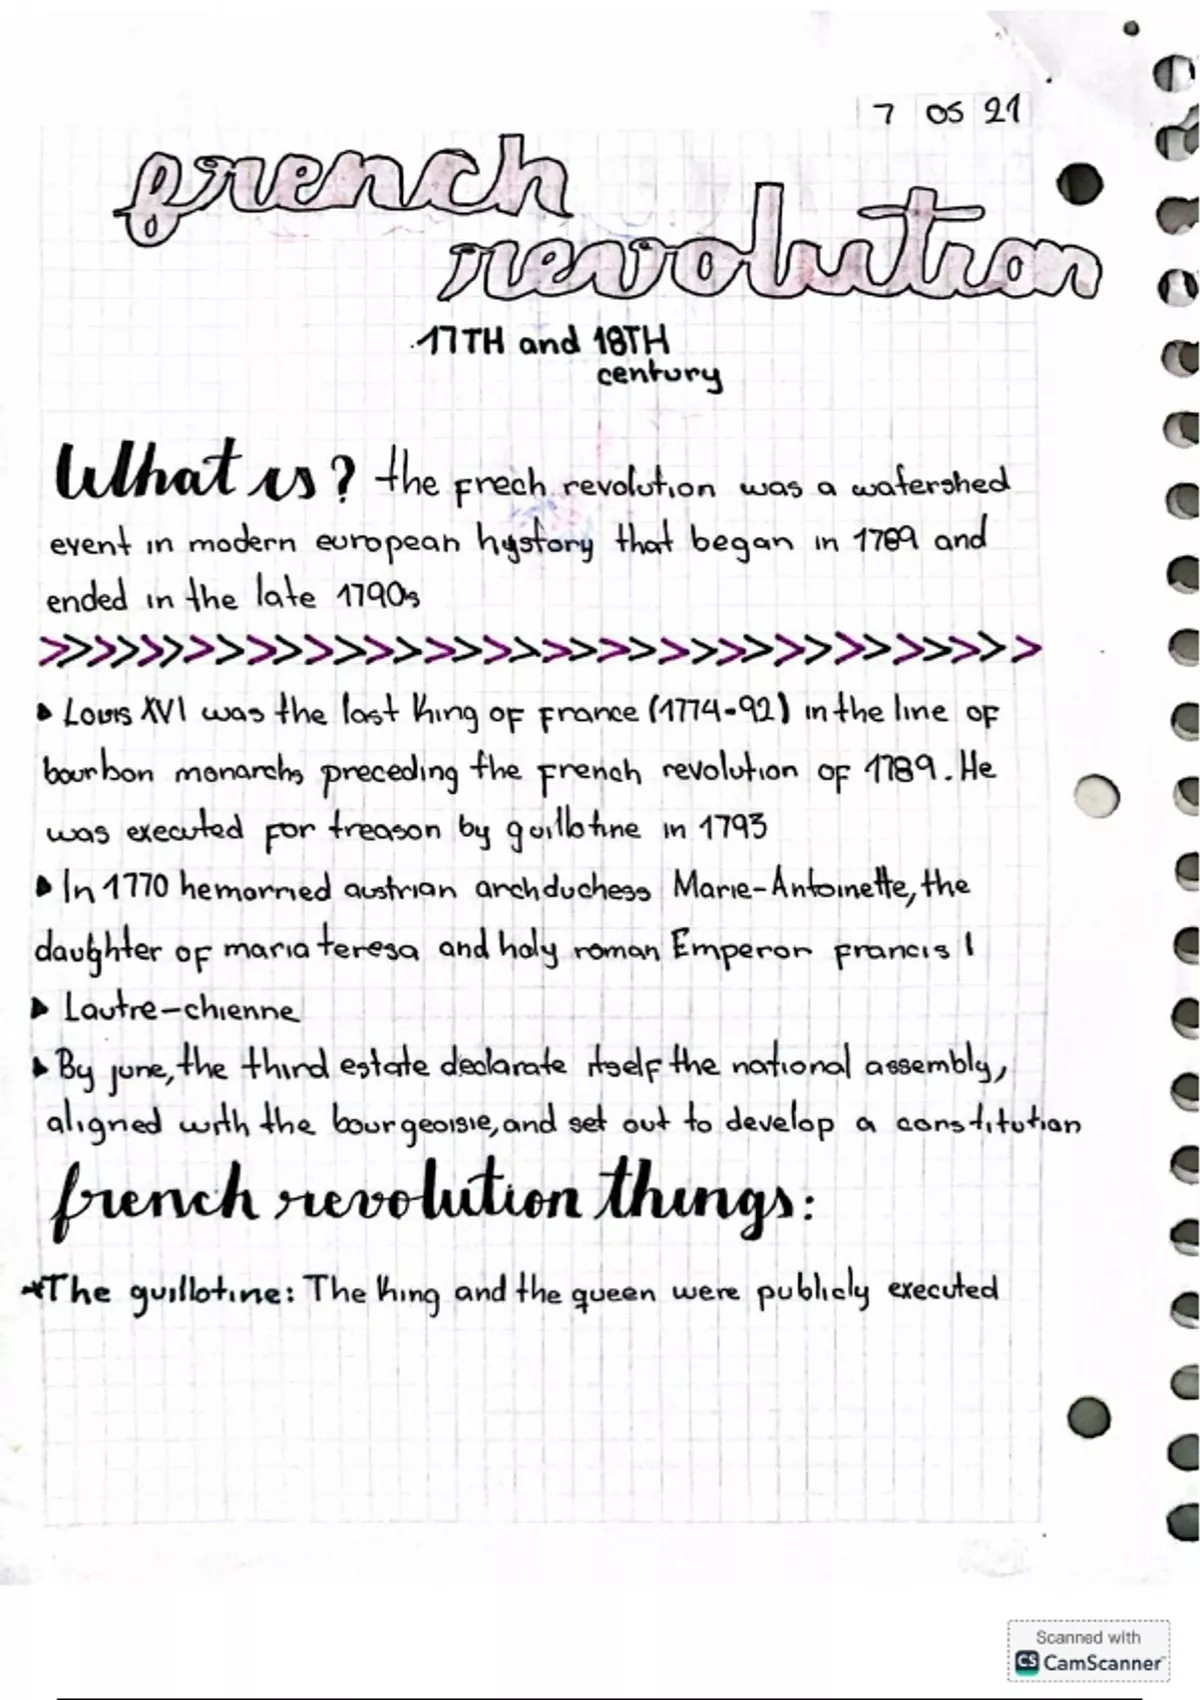 7 05 21
french
revolution
17TH and 18TH
century
What is? the frech revolution was a watershed
event in modern european hystory that began in 1789 and
ended in the late 1790s
>>>>>>>>>>>>>>>>>>>>>>>>>>>>>>>>>>
▸ Louis XVI was the last King of france (1774-92) in the line of
bourbon monarchs preceding the french revolution of 1789. He
was executed for treason by guillotine in 1793
▸ In 1770 he married austrian archduchess Marie-Antoinette, the
daughter of maria teresa and holy roman Emperor francis I
▸ Lautre-chienne
▸ By june, the third estate declarate itself the national assembly,
aligned with the bourgeoisie, and set out to develop a constitution
french revolution things:
*The guillotine: The King and the queen were publicly executed
Scanned with
CS CamScanner